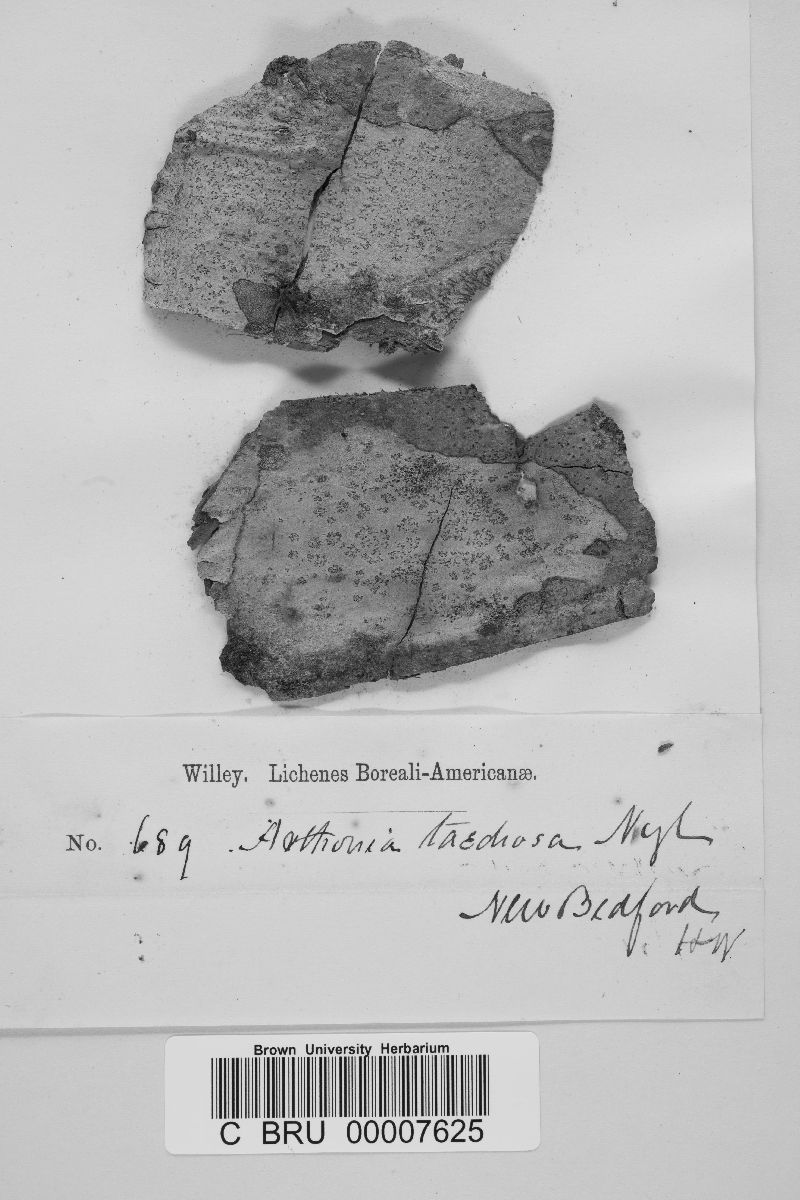 Willey. Lichenes Boreali-Americanæ.
No. 689 Arthonia taediosa Nyl
New Bedford
HW
Brown University Herbarium
C BRU 00007625